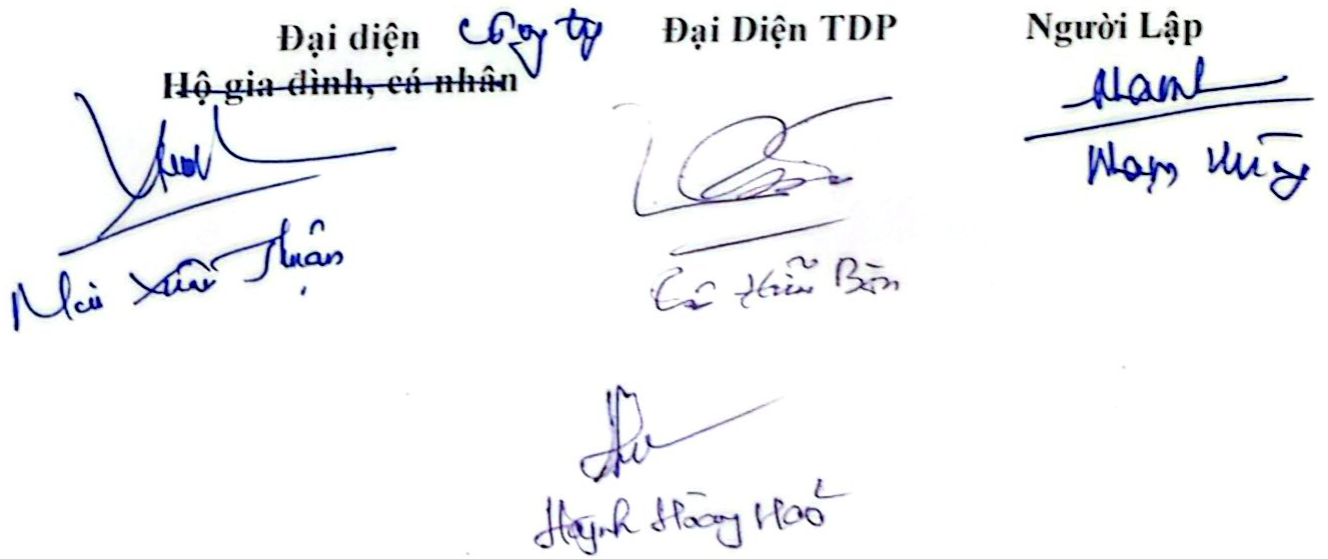 Đại diện công ty
Hộ gia đình, cá nhân
Mai Xuân Thuận
Đại Diện TDP
Hữu Bốn
Người Lập
Nam
Hùng
Huỳnh Hoàng Hoá